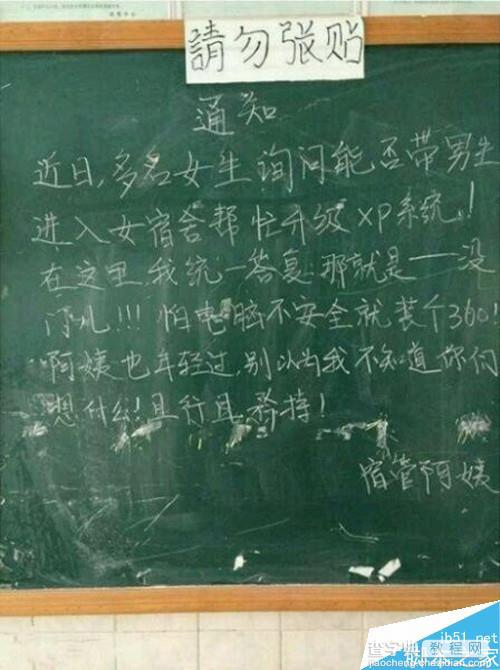 請勿张贴
通知
近日,多名女生询问能否带男生
进入女宿舍帮忙升级xp系统!
在这里我统一答复.那就是——没
门儿!!!怕电脑不安全就装个360!
阿姨也年轻过,别以为我不知道你们
想什么!且行且矜持!
宿管阿姨
jb51.net
教程网
jiaocheng.chazidian.com